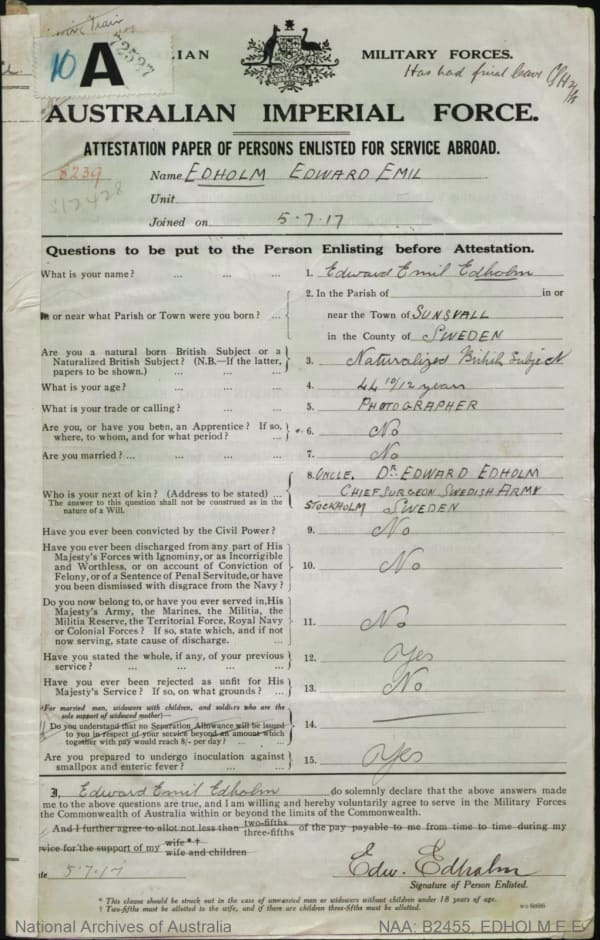 72527
10 A
ALIAN MILITARY FORCES.
Has had final leave
AUSTRALIAN IMPERIAL FORCE.
ATTESTATION PAPER OF PERSONS ENLISTED FOR SERVICE ABROAD.
8239
Name EDHOLM EDWARD EMIL
S12428
Unit
Joined on 5.7.17
Questions to be put to the Person Enlisting before Attestation.
What is your name? ... ... ... 1. Edward Emil Edholm
2. In the Parish of in or
In or near what Parish or Town were you born? ... near the Town of SUNSVALL
in the County of SWEDEN
Are you a natural born British Subject or a
Naturalized British Subject? (N.B.—If the latter, 3. Naturalized British Subject N.
papers to be shown.) ... ... ...
What is your age? ... ... ... 4. 44 10/12 years
What is your trade or calling? ... ... 5. PHOTOGRAPHER
Are you, or have you been, an Apprentice? If so, 6. No
where, to whom, and for what period? ...
Are you married? ... ... ... ... 7. No
8. UNCLE. DR. EDWARD EDHOLM
Who is your next of kin? (Address to be stated) ... CHIEF SURGEON SWEDISH ARMY
The answer to this question shall not be construed as in the STOCKHOLM SWEDEN
nature of a Will.
Have you ever been convicted by the Civil Power? 9. No
Have you ever been discharged from any part of His
Majesty's Forces with Ignominy, or as Incorrigible
and Worthless, or on account of Conviction of 10. No
Felony, or of a Sentence of Penal Servitude, or have
you been dismissed with disgrace from the Navy?
Do you now belong to, or have you ever served in, His
Majesty's Army, the Marines, the Militia, the
Militia Reserve, the Territorial Force, Royal Navy 11. No
or Colonial Forces? If so, state which, and if not
now serving, state cause of discharge. ...
Have you stated the whole, if any, of your previous 12. Yes
service? ... ... ... ...
Have you ever been rejected as unfit for His 13. No
Majesty's Service? If so, on what grounds? ...
*For married men, widowers with children, and soldiers who are the
sole support of widowed mother)—
Do you understand that no Separation Allowance will be issued 14.
to you in respect of your service beyond an amount which
together with pay would reach 8/- per day? ... ...
Are you prepared to undergo inoculation against 15. Yes
smallpox and enteric fever? ... ...
I, Edward Emil Edholm do solemnly declare that the above answers made
me to the above questions are true, and I am willing and hereby voluntarily agree to serve in the Military Forces
the Commonwealth of Australia within or beyond the limits of the Commonwealth.
And I further agree to allot not less than two-fifths three-fifths of the pay payable to me from time to time during my
rvice for the support of my wife*† wife and children
te 5.7.17 Edw. Edholm
Signature of Person Enlisted.
* This clause should be struck out in the case of unmarried men or widowers without children under 18 years of age.
† Two-fifths must be allotted to the wife, and if there are children three-fifths must be allotted.
National Archives of Australia NAA: B2455, EDHOLM E E